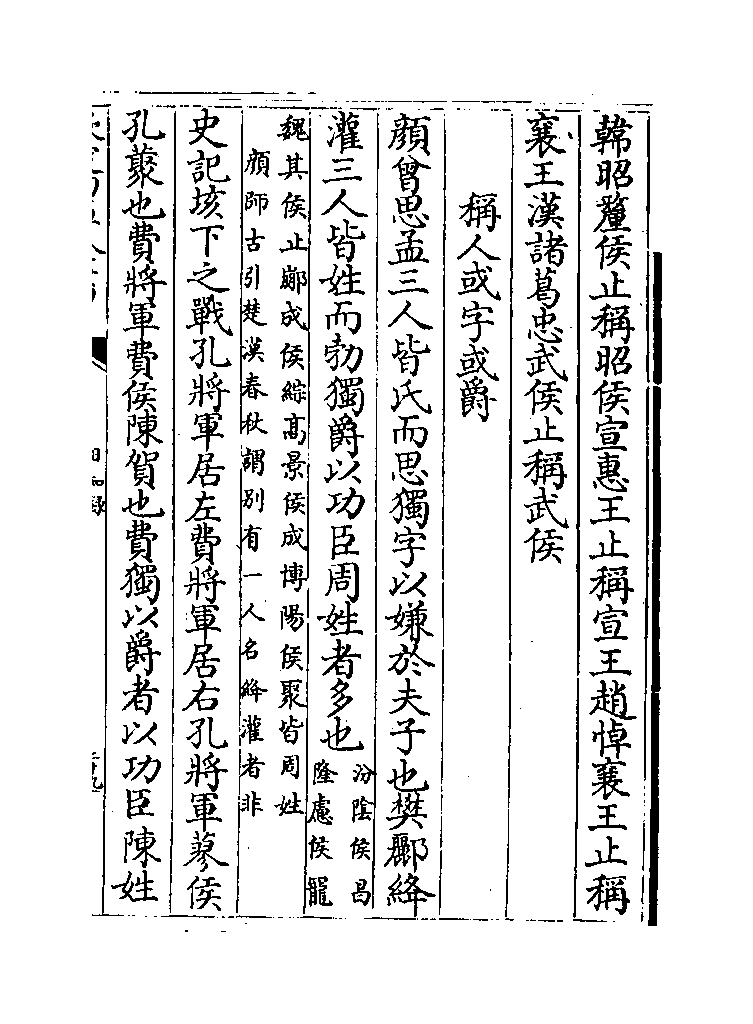 韓昭釐侯止稱昭侯宣惠王止稱宣王趙悼襄王止稱
襄王漢諸葛忠武侯止稱武侯
稱人或字或爵
顏曾思孟三人皆氏而思獨字以嫌於夫子也樊酈絳
灌三人皆姓而勃獨爵以功臣周姓者多也
汾陰侯昌
隆慮侯
魏其侯止成侯綜高景侯成博陽侯聚皆周姓
顔師古引楚漢春秋謂別有一人名絳灌者非
史記垓下之戰孔將軍居左費將軍居右孔將軍蓼侯
孔藂也費將軍費侯陳賀也費獨以爵者以功臣陳姓
日知錄